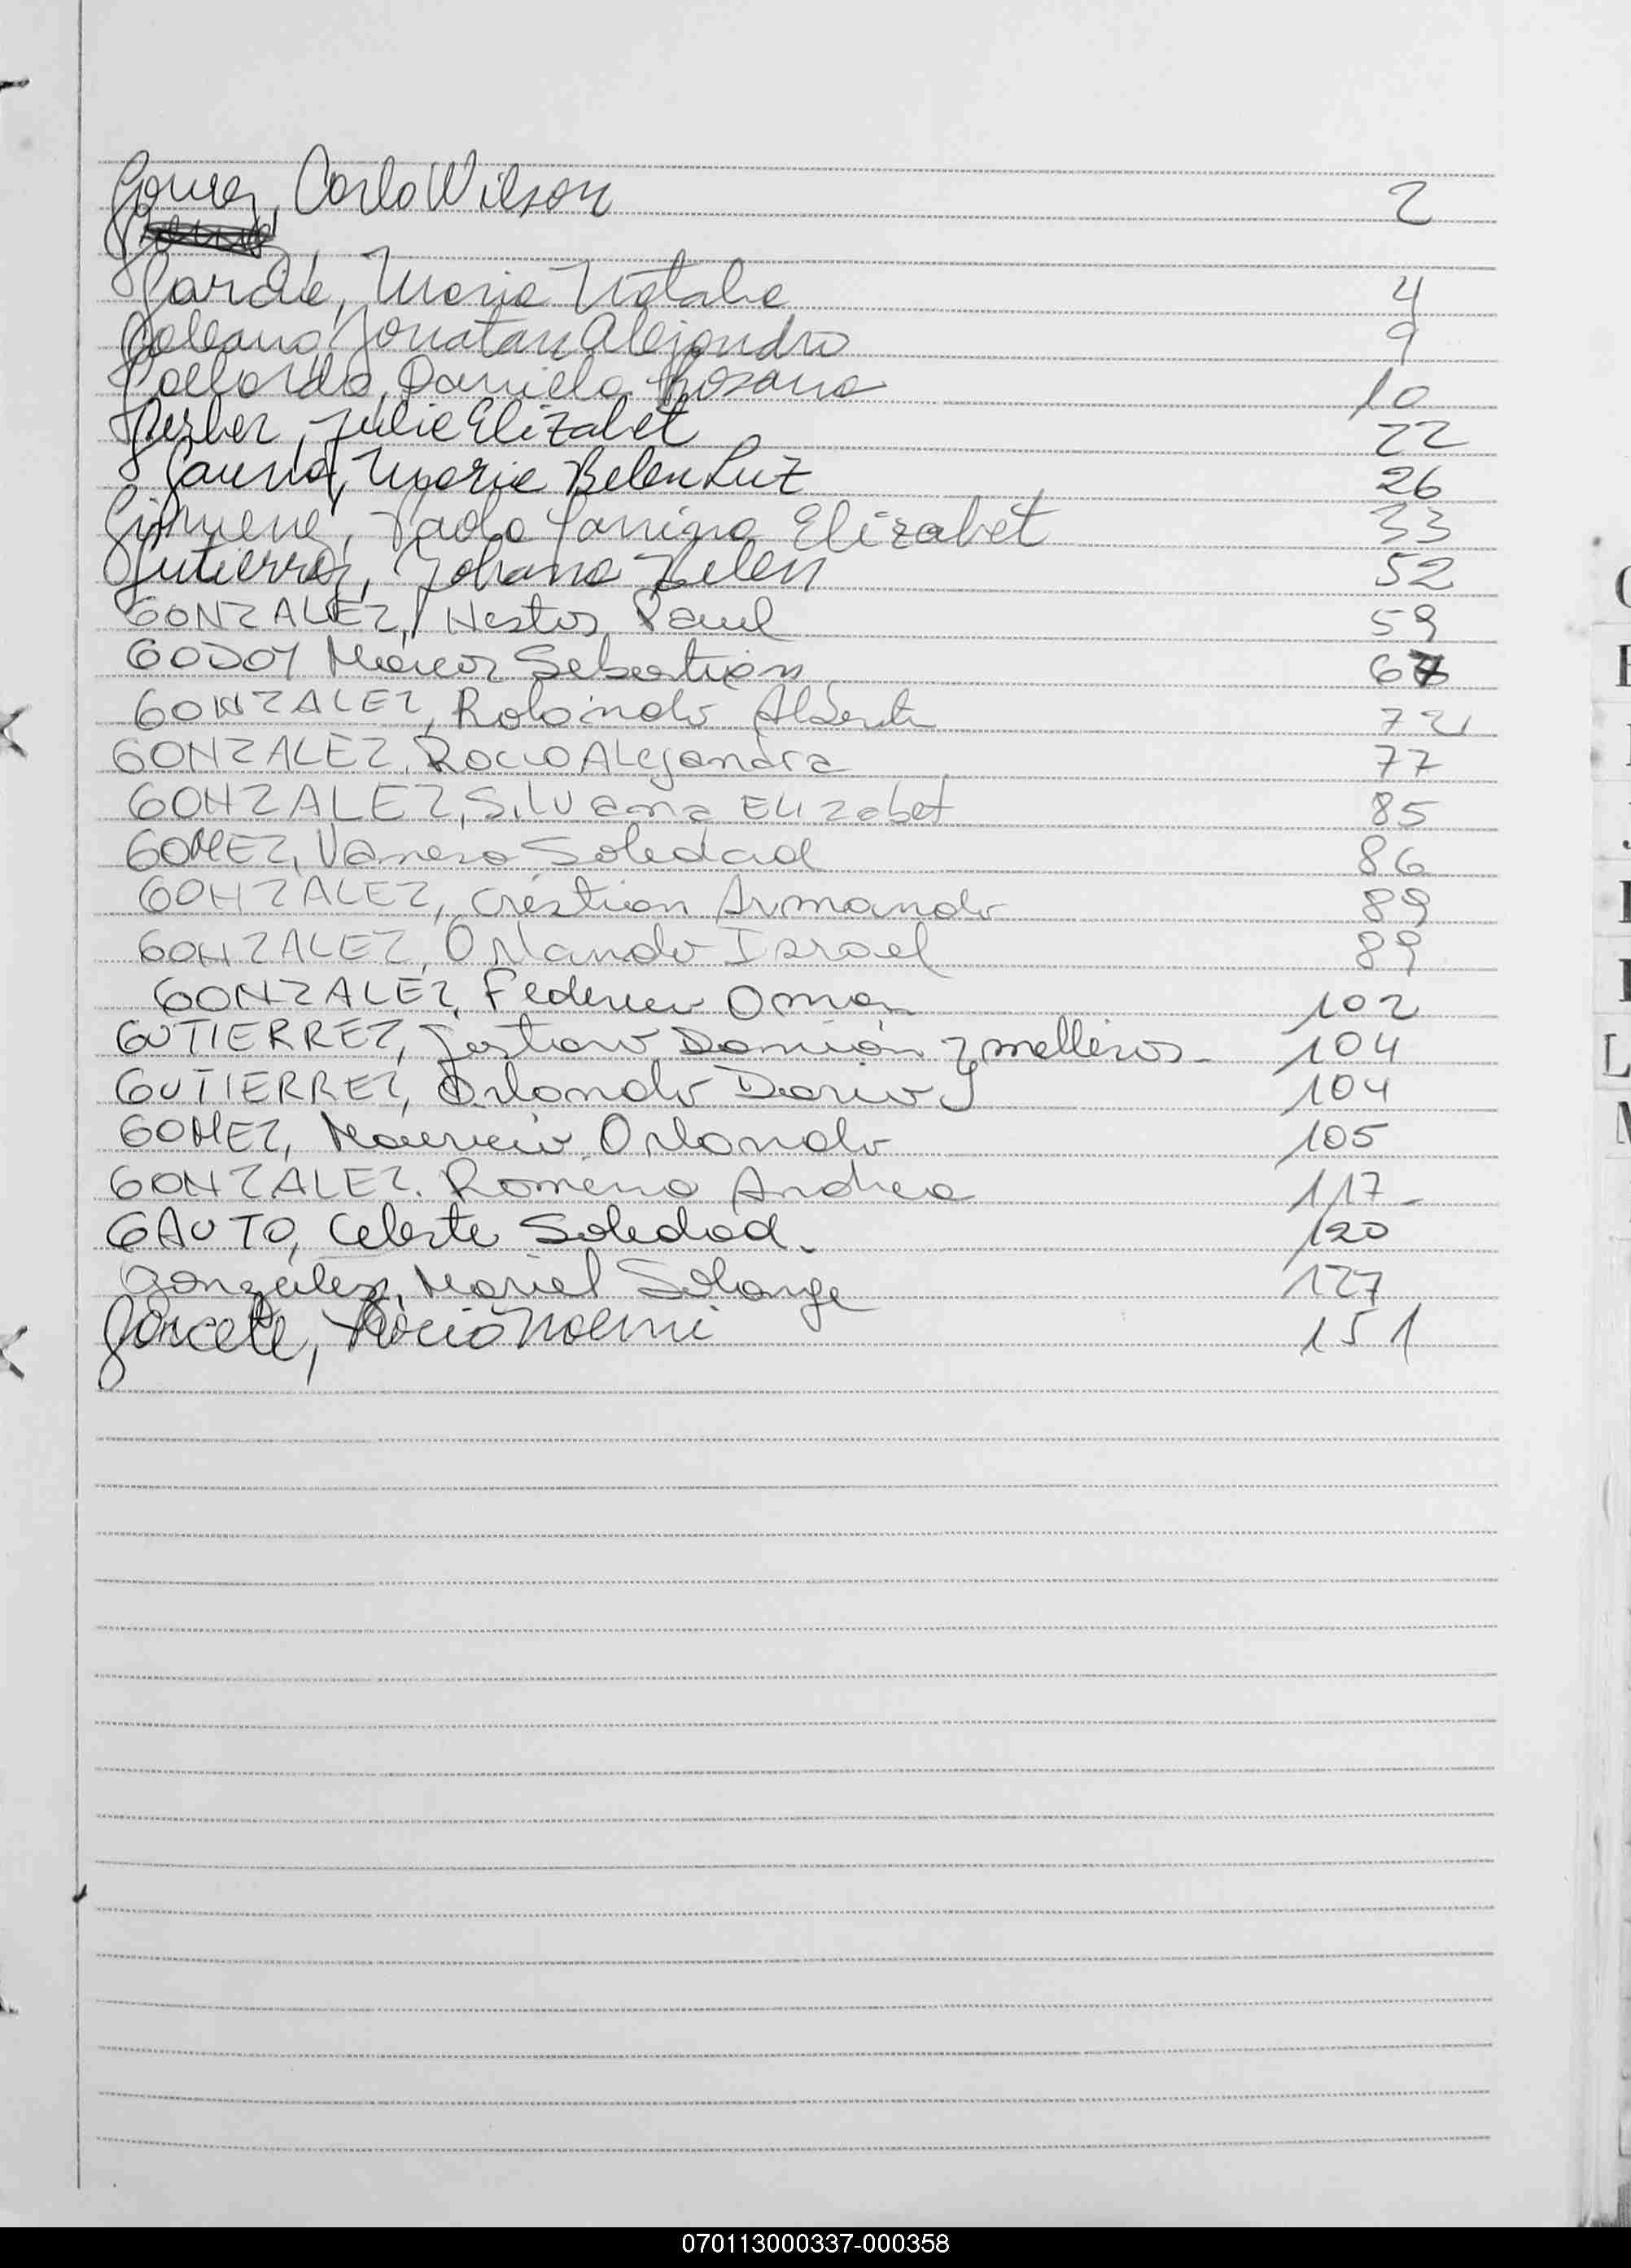 Gomez, Carlo Wilson 2
Garcia, Maria Natalia 4
Galeano, Jonatan Alejandro 9
Gallardo, Daniela Rosana 10
Gerber, Julia Elizabet 22
Gauna, Maria Belen Luz 26
Gimenez, Paola Yanina Elizabet 33
Gutierrez, Johana Belen 52
GONZALEZ, Nestor Paul 59
GODOY Marcos Sebastián
GONZALEZ, Rolando Alberto 72
GONZALEZ, Rocio Alejandra 77
GONZALEZ, Silvana Elizabet 85
GOMEZ, Vanesa Soledad 86
GONZALEZ, Cristian Armando 89
GONZALEZ, Orlando Israel 89
GONZALEZ, Federico Omar 102
GUTIERREZ, Gustavo Damián mellizos - 104
GUTIERREZ, Orlando Dario 104
GOMEZ, Mauricio Orlando 105
GONZALEZ. Romina Andrea 117 -
GAUTO, Celeste Soledad. 120
Gonzalez, Mariel Solange 127
Rocio Noemi 151
070113000337-000358